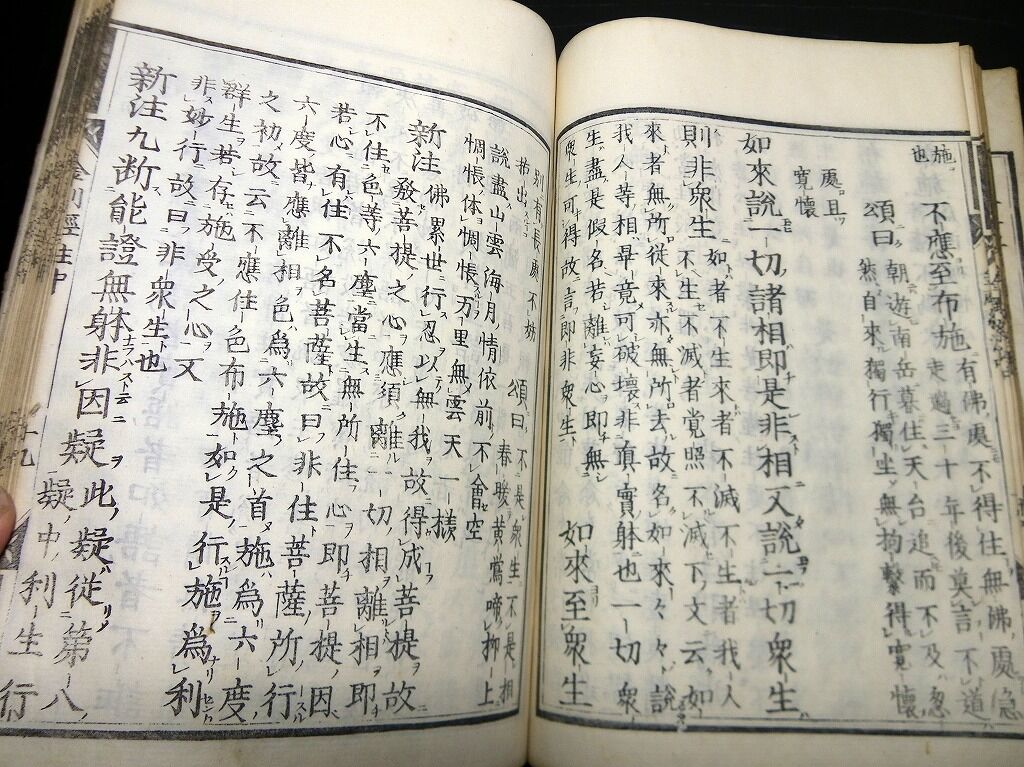 施
也
不應至布施
有佛處不得住無佛處急
走過三十年後莫言不道
頌曰
朝遊南岳暮住天台追而不及忽
然自來獨行獨坐無拘繫得寬懷
處且
寬懷
如來說一切諸相即是非相又說一切衆生
則非衆生
如者不生來者不滅不生者我人
不生不滅者覺照不滅下文云如
來者無所從來亦無所去故名如來々々說
我人等相畢竟可破壞非眞實躰也一切衆
生盡是假名若離妄心即無
衆生可得故言即非衆生
如來至衆生
別有長處不妨
拈出
頌曰
不是衆生不是相
春暖黃鶯啼柳上
說盡山雲海月情依前不會空
惆悵休惆悵万里無雲天一㨾
新注
佛累世行忍以無我故得成菩提故
發菩提之心應須離一切相離相即
不住色等六塵當生無所住心即菩提因
若心有住不名菩薩故曰非住菩薩所行
六度皆應離相色爲六塵之首施爲六度
之初故云不應住色布施如是行施爲利
群生若存施受之心又
非妙行故曰非衆生也
新注九断能證無躰非因疑此疑從第八
疑中利生行
金剛經註中
十九